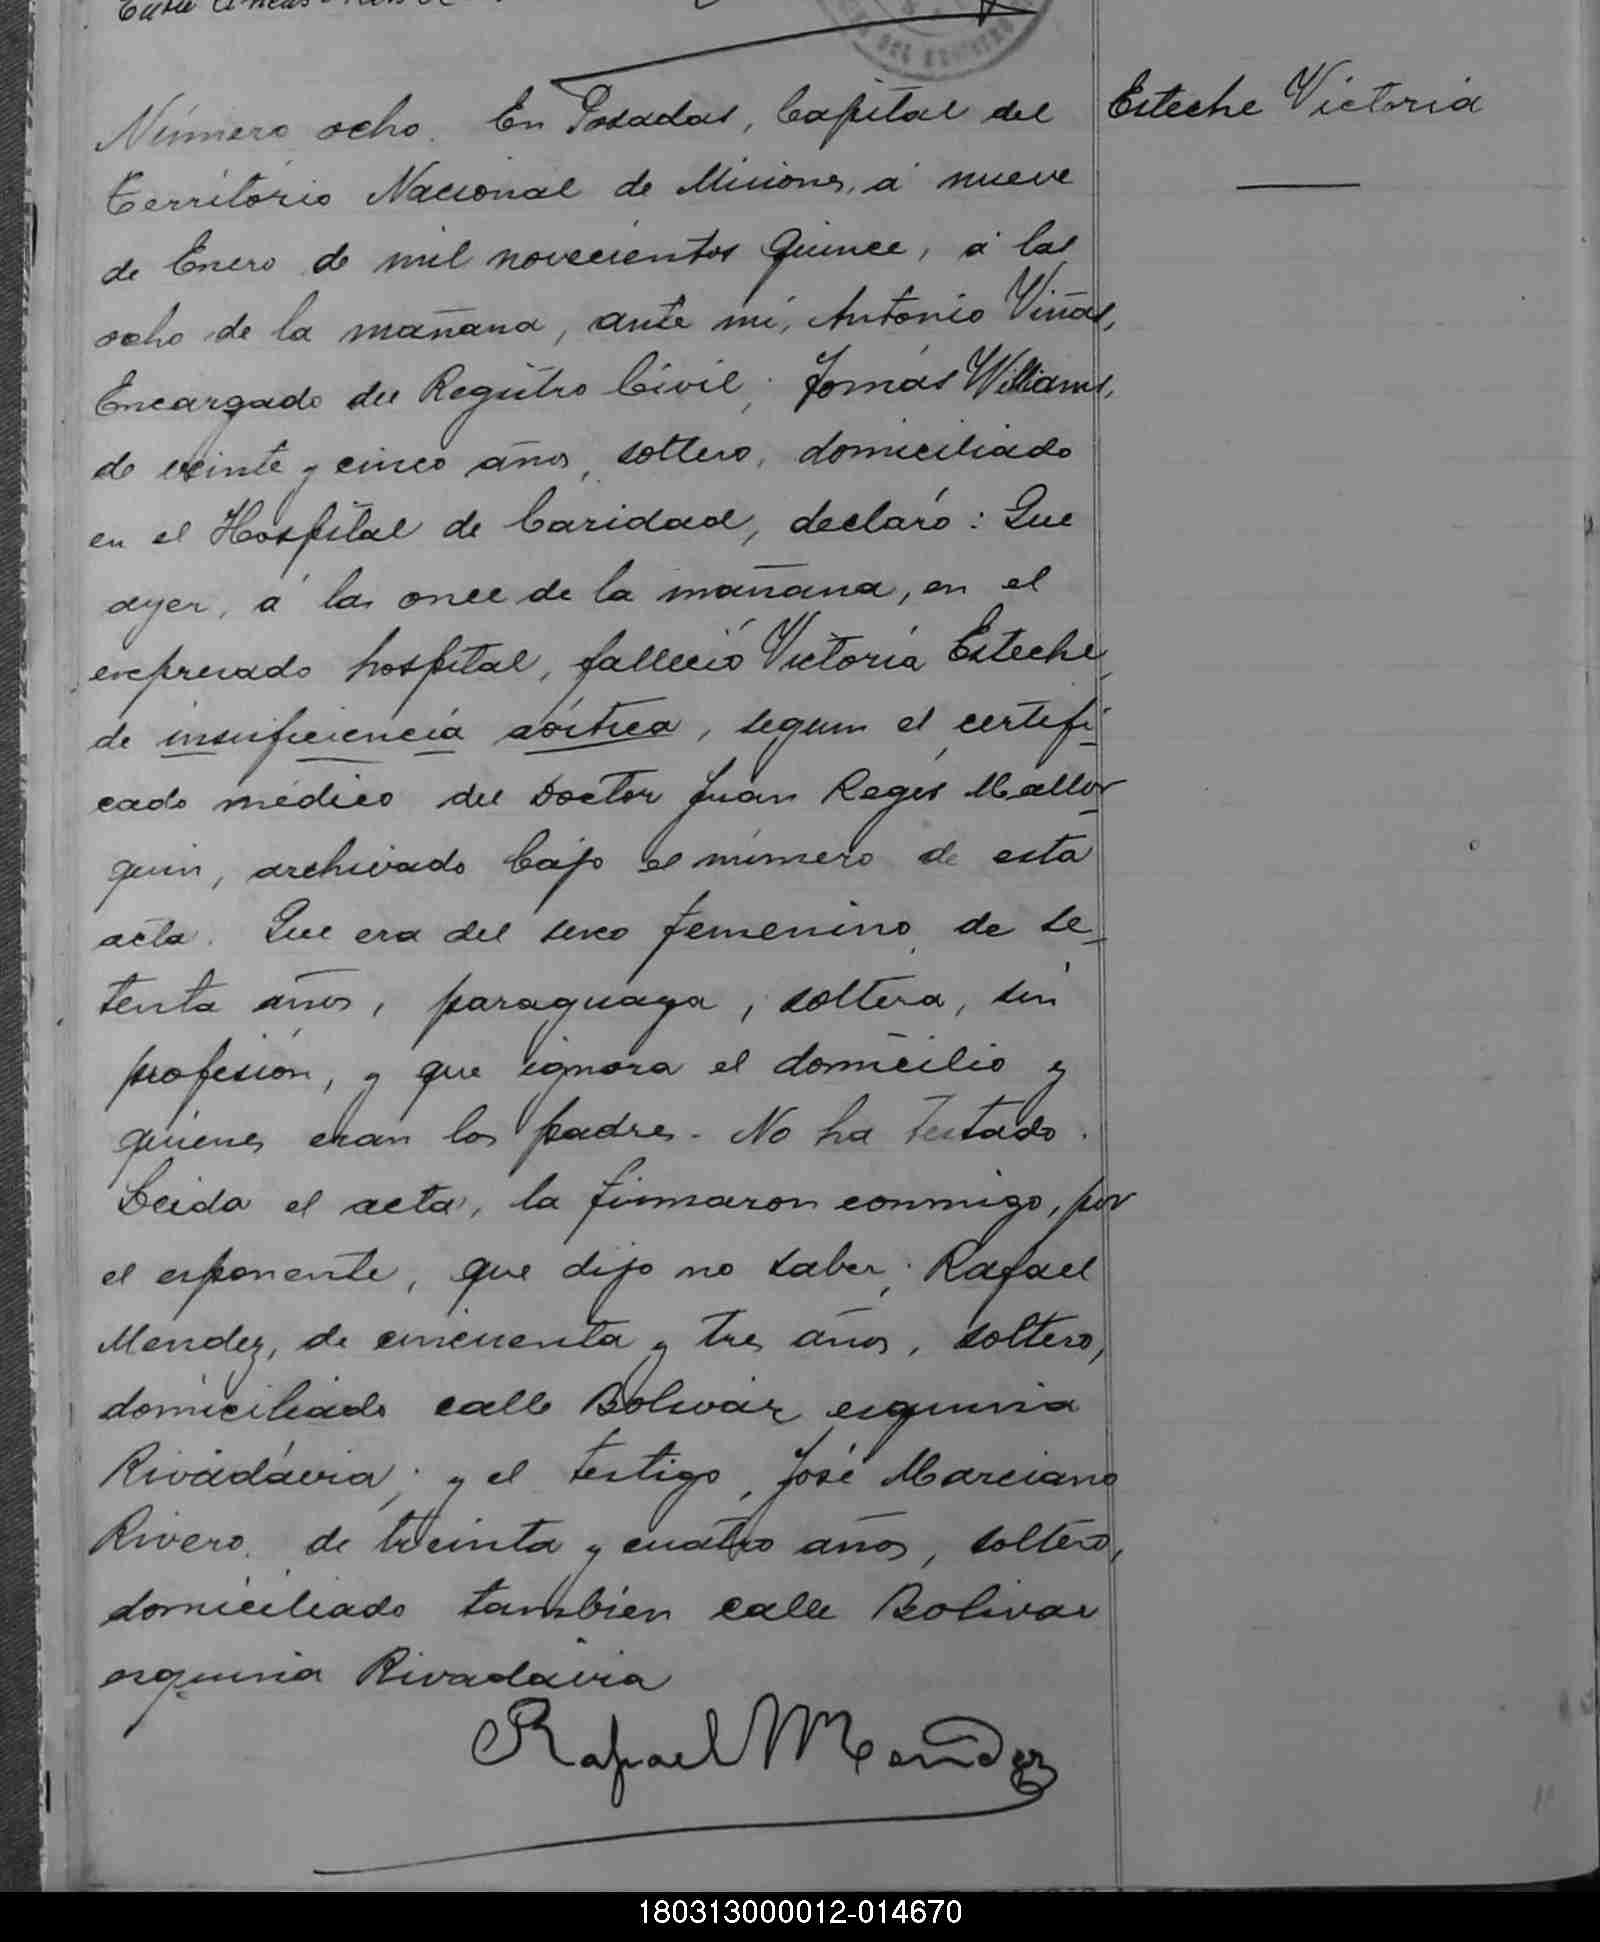 Número ocho. En Posadas, Capital del
Territorio Nacional de Misiones, á nueve
de Enero de mil novecientos quince, á las
ocho de la mañana, ante mi, Antonio Viñas,
Encargado del Registro Civil; Tomás Williams,
de veinte y cinco años, soltero, domiciliado
en el Hospital de Caridad, declaró: Que
ayer, á las once de la mañana, en el
expresado hospital, falleció Victoria Esteche,
de insuficiencia aórtica, segun el certifi-
cado médico del Doctor Juan Regis Mallor-
quin, archivado bajo el número de esta
acta. Que era del sexo femenino, de se-
tenta años, paraguaya, soltera, sin
profesión, y que ignora el domicilio y
quienes eran los padres. No ha testado.
Leida el acta, la firmaron conmigo, por
el exponente, que dijo no saber; Rafael
Mendez, de cincuenta y tres años, soltero,
domiciliado calle Bolivar esquina
Rivadavia; y el testigo, José Marciano
Rivero, de treinta y cuatro años, soltero,
domiciliado también calle Bolivar
esquina Rivadavia
Rafael Mendez
Esteche Victoria
180313000012-014670